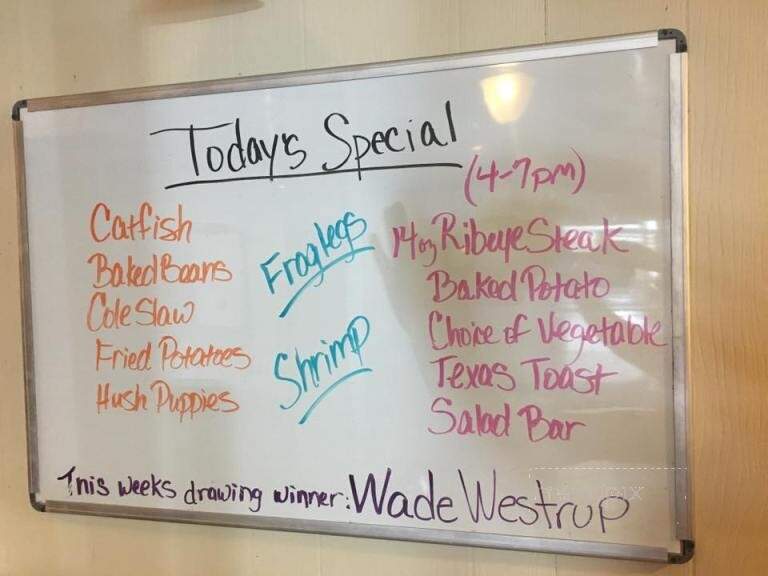 Today's Special
(4-7pm)
Catfish
Baked Beans
Cole Slaw
Fried Potatoes
Hush Puppies
Froglegs
Shrimp
14oz Ribeye Steak
Baked Potato
Choice of Vegetable
Texas Toast
Salad Bar
This weeks drawing winner: Wade Westrup